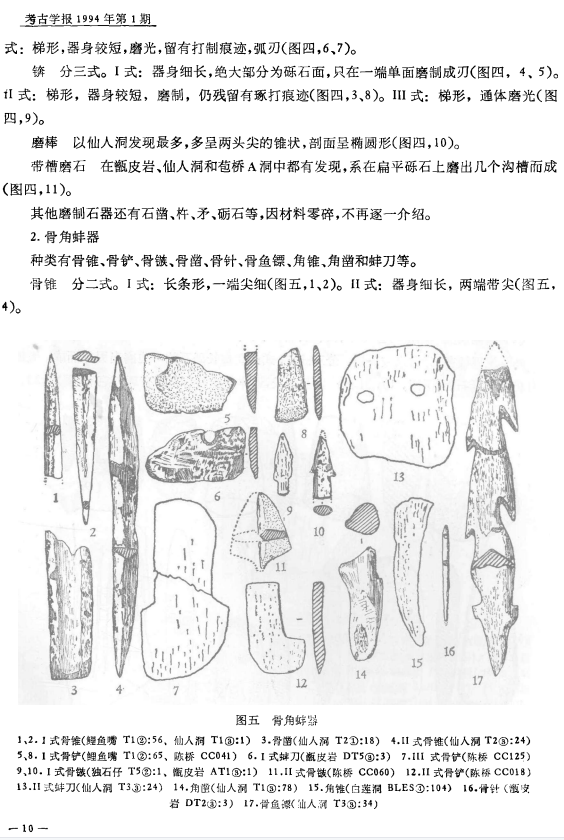 考古学报1994年第1期
式：梯形，器身较短，磨光，留有打制痕迹，弧刃（图四，6、7）。
锛　分三式。I 式：器身细长，绝大部分为砾石面，只在一端单面磨制成刃（图四，4、5）。
II 式：梯形，器身较短，磨制，仍残留有琢打痕迹（图四，3、8）。III 式：梯形，通体磨光（图
四，9）。
磨棒　以仙人洞发现最多，多呈两头尖的锥状，剖面呈椭圆形（图四，10）。
带槽磨石　在甑皮岩、仙人洞和苞桥 A 洞中都有发现，系在扁平砾石上磨出几个沟槽而成
（图四，11）。
其他磨制石器还有石凿、杵、矛、砺石等，因材料零碎，不再逐一介绍。
2. 骨角蚌器
种类有骨锥、骨铲、骨镞、骨凿、骨针、骨鱼镖、角锥、角凿和蚌刀等。
骨锥　分二式。I 式：长条形，一端尖细（图五，1、2）。II 式：器身细长，两端带尖（图五，
4）。
1
2
3
4
5
6
7
8
9
10
11
12
13
14
15
16
17
图五　骨角蚌器
1、2. I 式骨锥（鲤鱼嘴 T1②:56、仙人洞 T1③:1）　3.骨凿（仙人洞 T2③:18）　4.II 式骨锥（仙人洞 T2③:24）
5、8. I 式骨铲（鲤鱼嘴 T1②:65、陈桥 CC041）　6. I 式蚌刀（甑皮岩 DT5③:3）　7.III 式骨铲（陈桥 CC125）
9、10. I 式骨镞（独石仔 T5②:1、甑皮岩 AT1③:1）　11.II 式骨镞（陈桥 CC060）　12.II 式骨铲（陈桥 CC018）
13.II 式蚌刀（仙人洞 T3③:24）　14.角凿（仙人洞 T1③:78）　15.角锥（白莲洞 BLES①:104）　16.骨针（甑皮
岩 DT2③:3）　17.骨鱼镖（仙人洞 T3③:34）
— 10 —